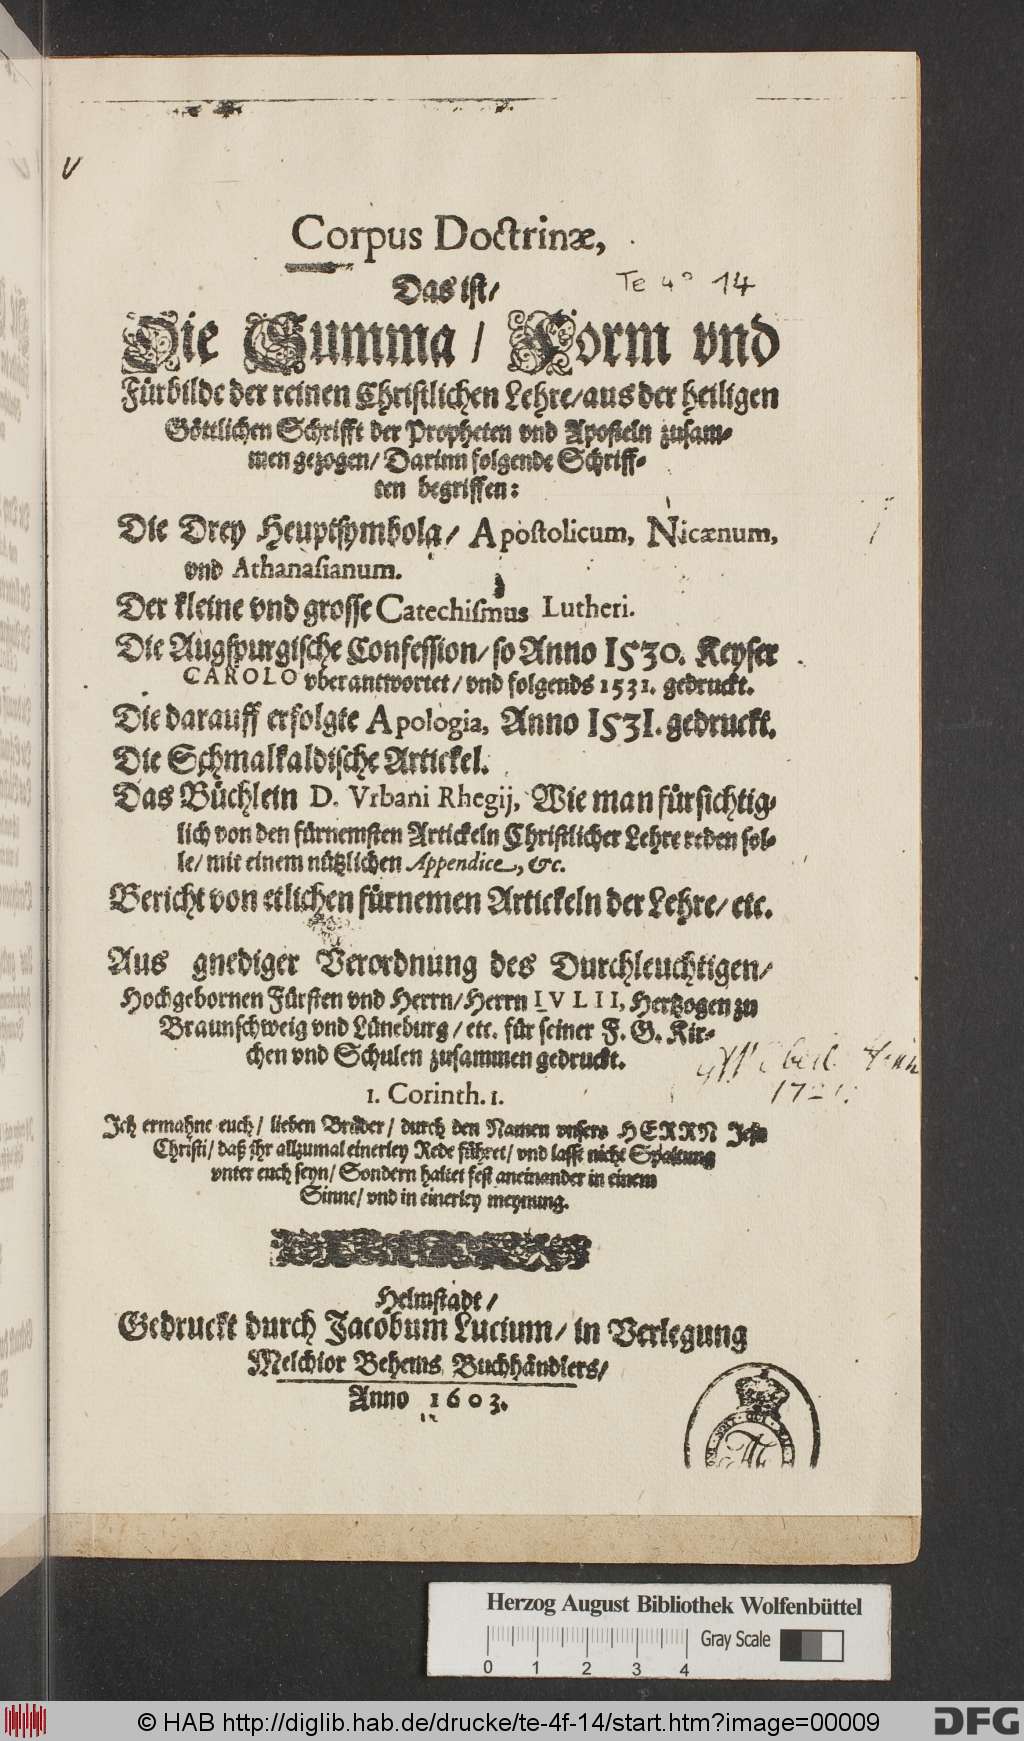 V
Corpus Doctrinæ,
Das ist/
Te 4° 14
Die Summa / Form vnd
Fürbilde der reinen Christlichen Lehre/aus der heiligen
Göttlichen Schrifft der Propheten vnd Aposteln zusam-
men gezogen/ Darinn folgende Schriff-
ten begriffen:
Die Drey Heuptsymbola/ Apostolicum, Nicænum,
vnd Athanasianum.
Der kleine vnd grosse Catechismus Lutheri.
Die Augspurgische Confession/ so Anno 1530. Keyser
CAROLO vberantwortet/ vnd folgends 1531. gedruckt.
Die darauff erfolgte Apologia, Anno 1531. gedruckt.
Die Schmalkaldische Artickel.
Das Büchlein D. Vrbani Rhegij, Wie man fürsichtig-
lich von den fürnemsten Artickeln Christlicher Lehre reden sol-
le/ mit einem nützlichen Appendice, &c.
Bericht von etlichen fürnemen Artickeln der Lehre/ etc.
Aus gnediger Verordnung des Durchleuchtigen/
Hochgebornen Fürsten vnd Herrn/ Herrn IVLII, Hertzogen zu
Braunschweig vnd Lüneburg/ etc. für seiner F. G. Kir-
chen vnd Schulen zusammen gedruckt.
1. Corinth. 1.
Ich ermahne euch/ lieben Brüder/ durch den Namen vnsers HERRN Jesu
Christi/ daß ihr allzumal einerley Rede führet/ vnd lasst nicht Spaltung
vnter euch seyn/ Sondern haltet fest aneinander in einem
Sinne/ vnd in einerley meynung.
Helmstadt/
Gedruckt durch Jacobum Lucium/ in Verlegung
Melchior Behems Buchhändlers/
Anno 1603.
Herzog August Bibliothek Wolfenbüttel
Gray Scale
0 1 2 3 4
© HAB http://diglib.hab.de/drucke/te-4f-14/start.htm?image=00009
DFG